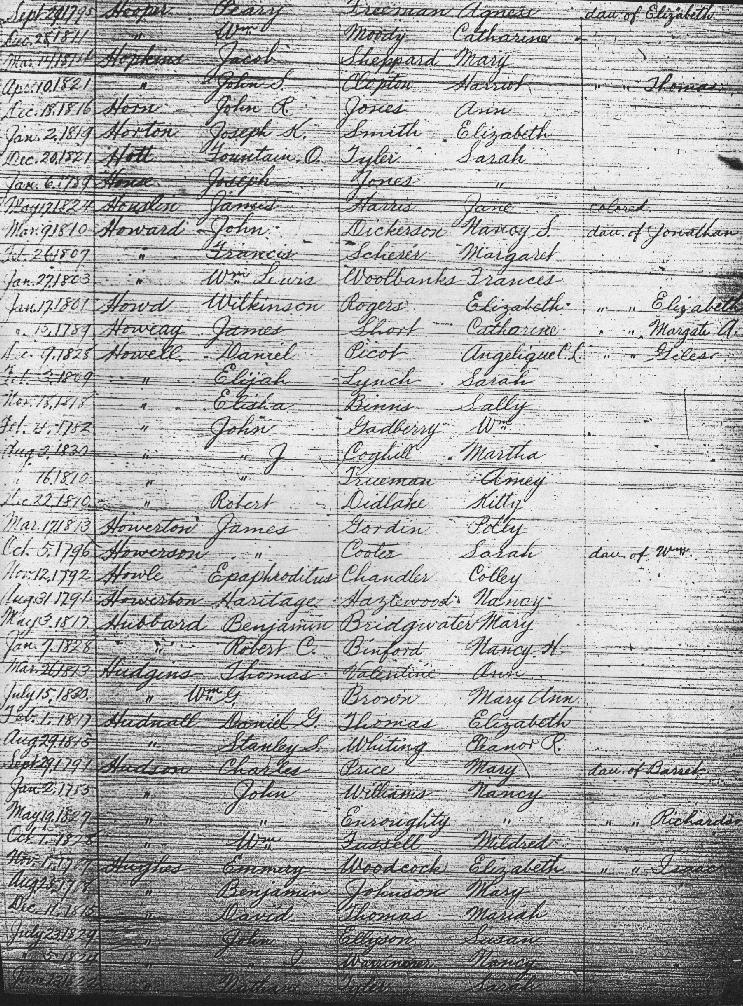 Sept. 29, 1795 Hooper Peary Freeman Agness dau. of Elizabeth
Dec. 28, 1811 " Wm Moody Catharine
Hopkins Jacob Sheppard Mary
Apr. 10, 1821 " John S. Clopton Harriet " " Thomas
Dec. 18, 1816 Horn John R. Jones Ann
Jan. 2, 1819 Horton Joseph K. Smith Elizabeth
Dec. 20, 1821 Hott Fountain O. Tyler Sarah
Jan. 6, 1789 Joseph Jones "
May 17, 1824 James Harris Jane colored
Mar. 9, 1810 Howard John Dickerson Nancy S. dau. of Jonathan
Feb. 26, 1807 " Francis Scherer Margaret
Jan. 27, 1803 " Wm Lewis Woolbanks Frances
Jan. 17, 1801 Howd Wilkinson Rogers Elizabeth " " Elizabeth
" 13, 1789 Howeay James Short Catharine " " Margate A.
Dec. 9, 1828 Howell Daniel Picot Angelique L. " " Giles
Feb. 3, 1809 " Elijah Lynch Sarah
Nov. 18, 1818 " Elisha Binns Sally
Feb. 21, 1782 " John Gadberry Wm
Aug. 2, " " J Coghill Martha
" 16, 1810 " " Freeman Amey
Dec. 22, 1810 " Robert Didlake Kitty
Mar. 17, 1813 Howerton James Gordin Polly
Oct. 5, 1796 Howerson " Cooter Sarah dau. of Wm
Nov. 12, 1792 Howle Epaphroditus Chandler Colley
Aug. 31, 1791 Howerton Haritage Hazlewood Nancy
May 13, 1817 Hubbard Benjamin Bridgwater Mary
Jan. 9, 1828 " Robert C. Binford Nancy H.
Mar. 21, 1813 Hudgins Thomas Valentine Ann
July 15, 1830 " Wm G. Brown Mary Ann
Feb. 1, 1817 Hudnall Daniel G. Thomas Elizabeth
Aug. 29, 1815 " Stanley S. Whiting Eleanor R.
Sept. 29, 1791 Hudson Charles Price Mary dau. of Barret
Jan. 2, 1783 " John Williams Nancy
May 19, 1827 " " Enroughty " " " Richardson
Oct. 1, 1828 " Wm Fussell Mildred
Hughes Emmay Woodcock Elizabeth " " Isaac
" Benjamin Johnson Mary
" David Thomas Mariah
July 23, 1829 " John Ellyson Susan
" " J Warriner Nancy
" Tyler Sarah